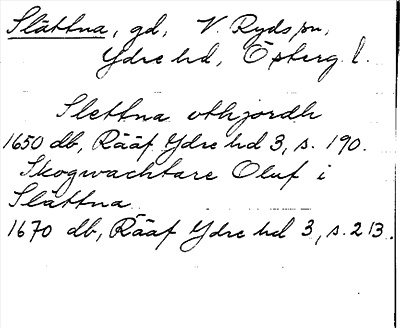 Slättna, gd, V. Ryds sn,
Ydre hd, Östergl.
Slettna othjordh
1650 db, Rääf Ydre hd 3, s. 190.
Skogwachtare Oluf i
Slättna
1670 db, Rääf Ydre hd 3, s. 213.